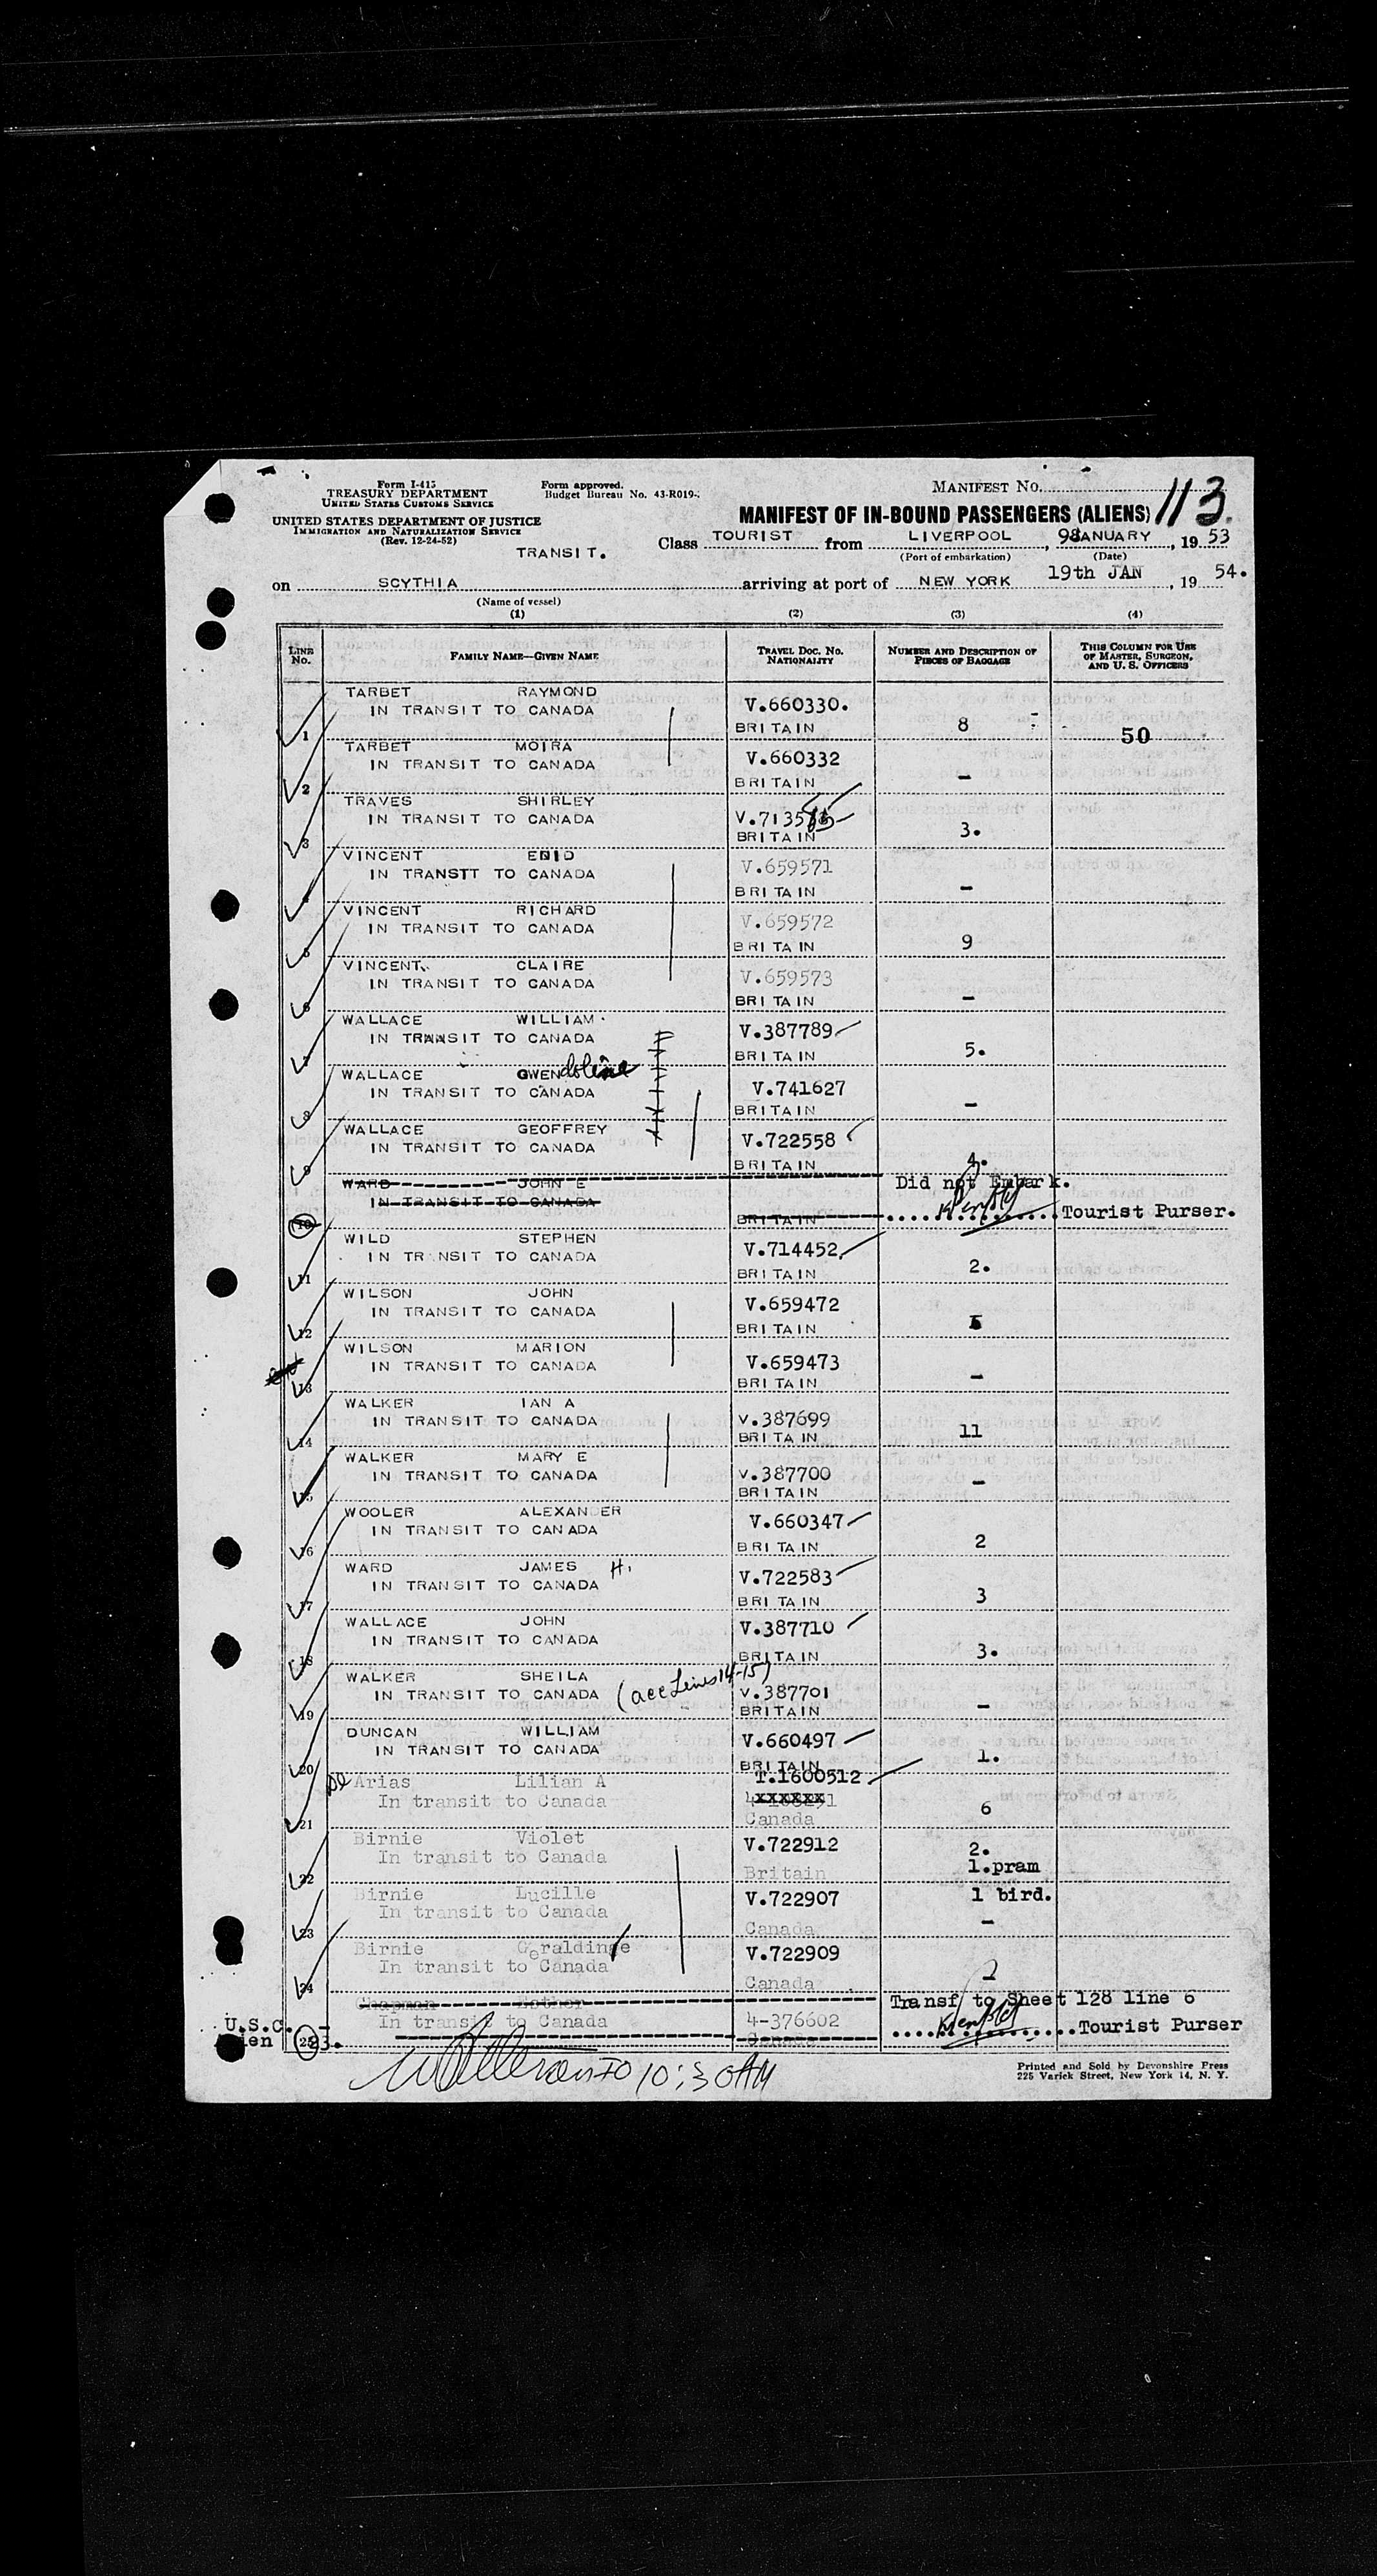 Form I-415
TREASURY DEPARTMENT
UNITED STATES CUSTOMS SERVICE
Form approved.
Budget Bureau No. 43-R019-
MANIFEST No.
113
UNITED STATES DEPARTMENT OF JUSTICE
IMMIGRATION AND NATURALIZATION SERVICE
(Rev. 12-24-52)
MANIFEST OF IN-BOUND PASSENGERS (ALIENS)
TRANSIT.
Class TOURIST from LIVERPOOL, 9JANUARY, 19 53
(Port of embarkation) (Date)
on SCYTHIA arriving at port of NEW YORK 19th JAN, 19 54.
(Name of vessel)
(1) (2) (3) (4)
LINE No. FAMILY NAME—GIVEN NAME TRAVEL DOC. No. NATIONALITY NUMBER AND DESCRIPTION OF PIECES OF BAGGAGE THIS COLUMN FOR USE OF MASTER, SURGEON, AND U. S. OFFICERS
TARBET RAYMOND V.660330.
1 IN TRANSIT TO CANADA BRITAIN 8 50
TARBET MOIRA V.660332
2 IN TRANSIT TO CANADA BRITAIN –
TRAVES SHIRLEY
3 IN TRANSIT TO CANADA BRITAIN 3.
VINCENT ENID V.659571
4 IN TRANSTT TO CANADA BRITAIN –
VINCENT RICHARD V.659572
5 IN TRANSIT TO CANADA BRITAIN 9
VINCENT CLAIRE V.659573
6 IN TRANSIT TO CANADA BRITAIN –
WALLACE WILLIAM V.387789
7 IN TRANSIT TO CANADA BRITAIN 5.
WALLACE GWENdoline V.741627
8 IN TRANSIT TO CANADA BRITAIN –
WALLACE GEOFFREY V.722558
9 IN TRANSIT TO CANADA BRITAIN 4.
WARD JOHN E Did not Embark.
10 IN TRANSIT TO CANADA BRITAIN Tourist Purser.
WILD STEPHEN V.714452
11 IN TRANSIT TO CANADA BRITAIN 2.
WILSON JOHN V.659472
12 IN TRANSIT TO CANADA BRITAIN
WILSON MARION V.659473
13 IN TRANSIT TO CANADA BRITAIN –
WALKER IAN A V.387699
14 IN TRANSIT TO CANADA BRITAIN 11
WALKER MARY E V.387700
15 IN TRANSIT TO CANADA BRITAIN –
WOOLER ALEXANDER V.660347
16 IN TRANSIT TO CANADA BRITAIN 2
WARD JAMES H. V.722583
17 IN TRANSIT TO CANADA BRITAIN 3
WALLACE JOHN V.387710
18 IN TRANSIT TO CANADA BRITAIN 3.
WALKER SHEILA (acc Lines 14-15) V.387701
19 IN TRANSIT TO CANADA BRITAIN –
DUNCAN WILLIAM V.660497
20 IN TRANSIT TO CANADA BRITAIN 1.
Arias Lilian A T.1600512
21 In transit to Canada Canada 6
Birnie Violet V.722912 2.
22 In transit to Canada Britain 1.pram
Birnie Lucille V.722907 1 bird.
23 In transit to Canada Canada –
Birnie Geraldine V.722909
24 In transit to Canada Canada
Chapman Esther Transf to Sheet 128 line 6
25 In transit to Canada 4-376602 Canada Tourist Purser
U.S.C. –
Alien 23.
10:30 AM
Printed and Sold by Devonshire Press
225 Varick Street, New York 14, N. Y.